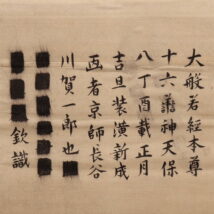 大般若經本尊
十六善神天保
八丁酉載正月
吉旦装潢新成
画者京師長谷
川賀一郎也
欽識